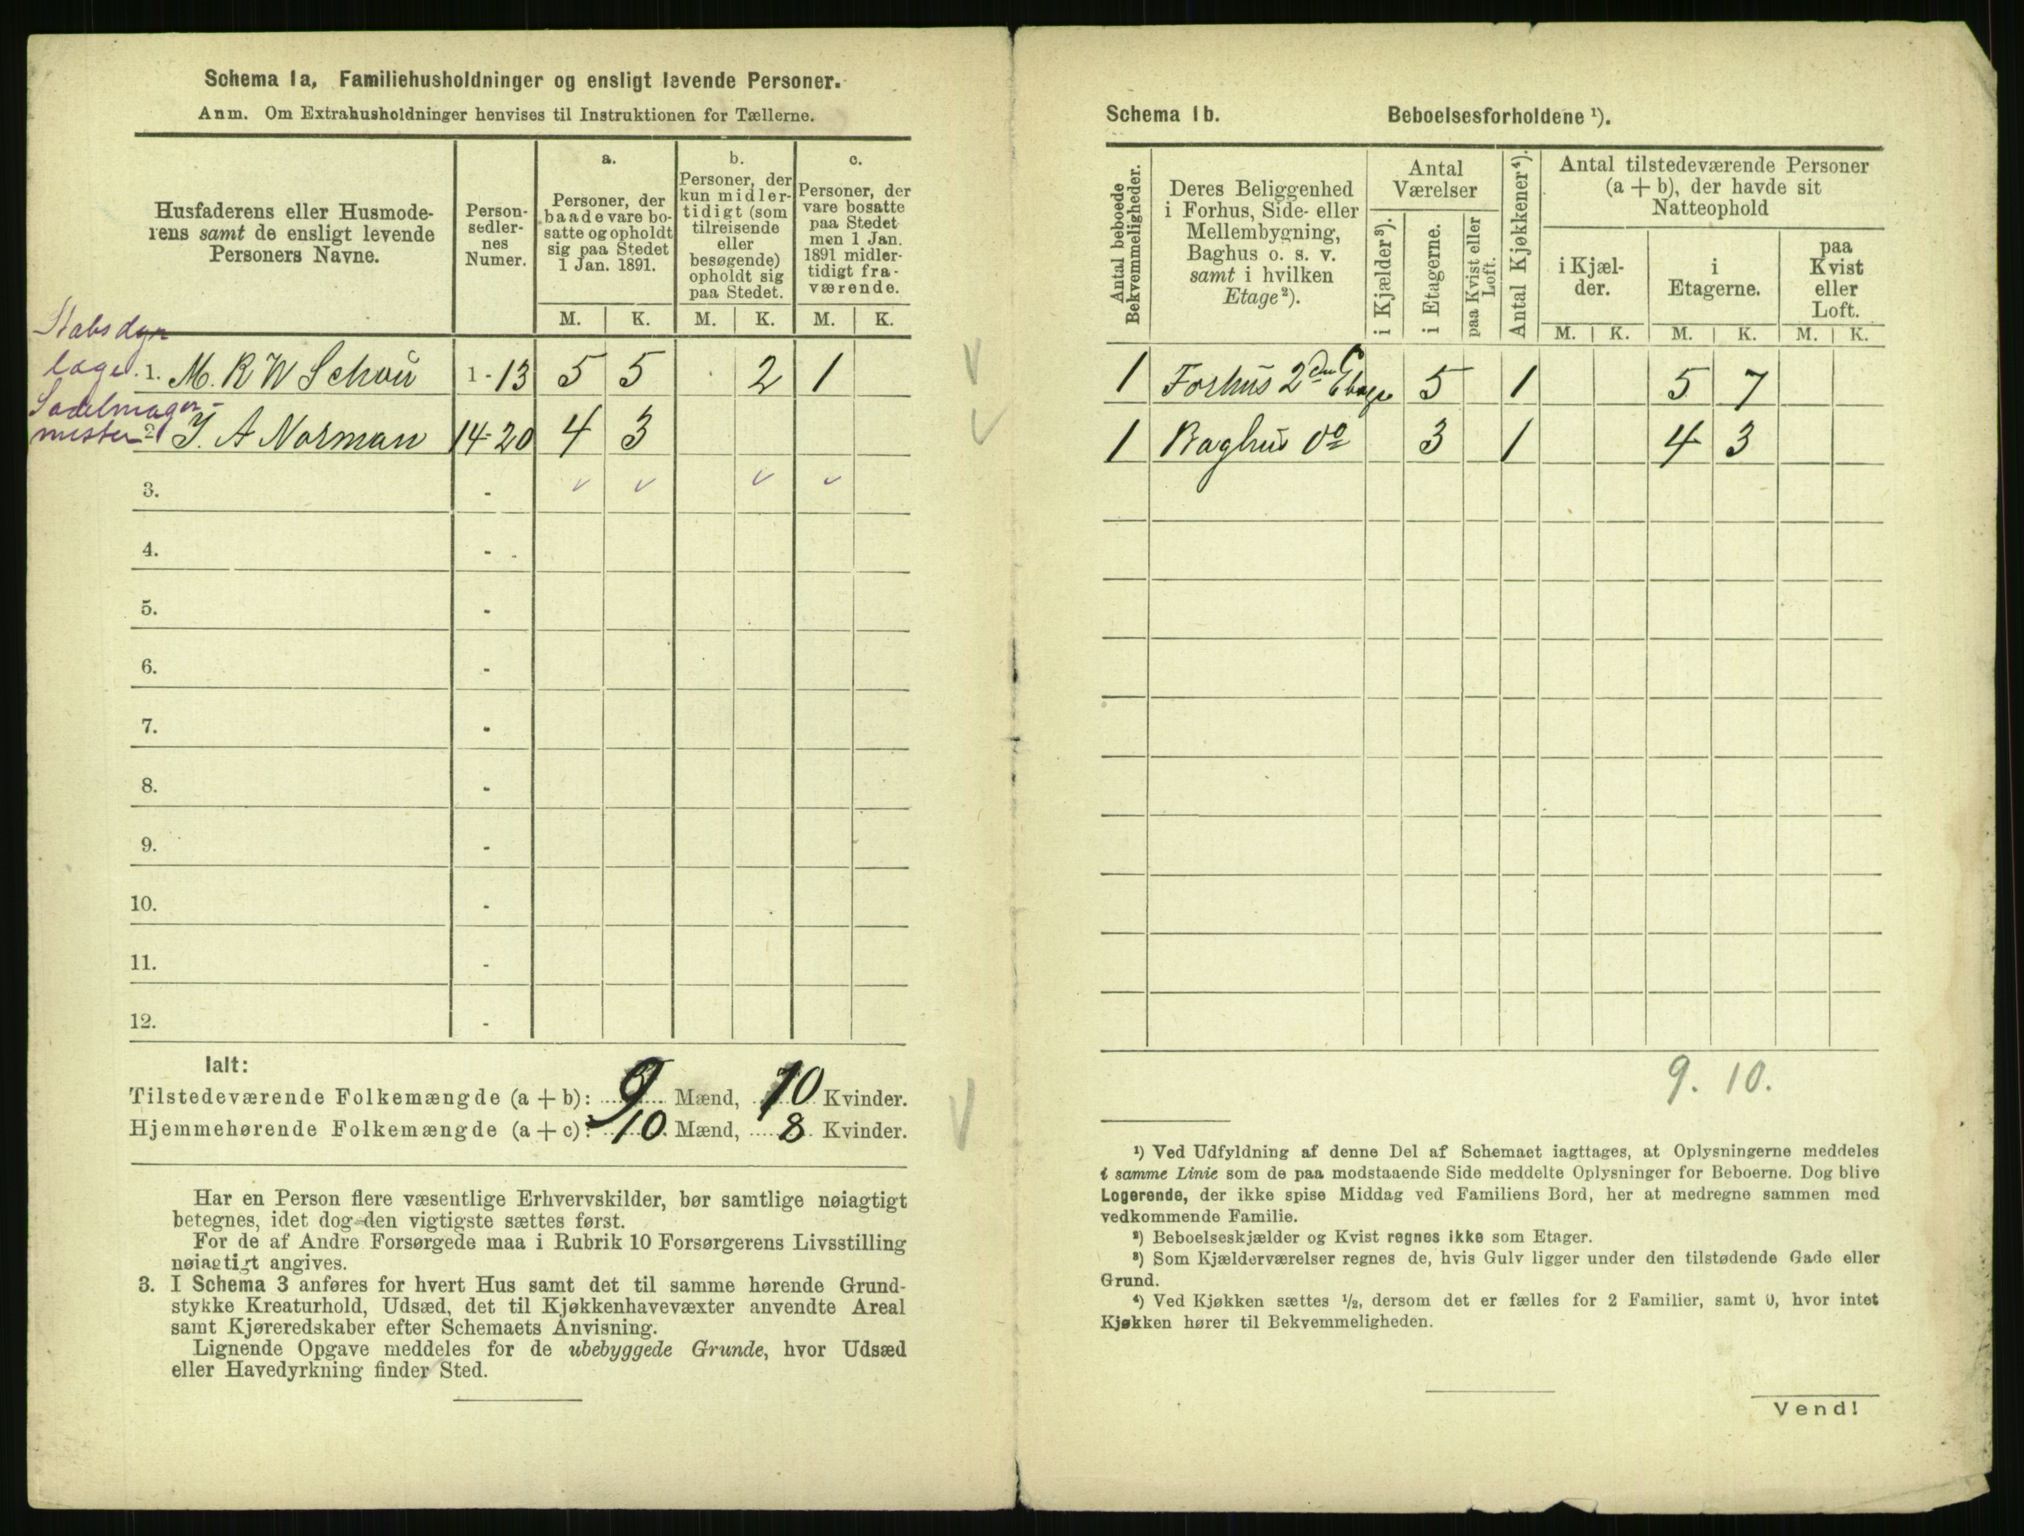 Schema 1a, Familiehusholdninger og ensligt levende Personer.
Anm. Om Extrahusholdninger henvises til Instruktionen for Tællerne.
Husfaderens eller Husmode-
rens samt de ensligt levende
Personers Navne.
Person-
sedler-
nes
Numer.
a.
Personer, der
baade vare bo-
satte og opholdt
sig paa Stedet
1 Jan. 1891.
b.
Personer, der
kun midler-
tidigt (som
tilreisende
eller
besøgende)
opholdt sig
paa Stedet.
c.
Personer, der
vare bosatte
paa Stedet
men 1 Jan.
1891 midler-
tidigt fra-
værende.
M. K. M. K. M. K.
Stabsdyr
læge 1. M. R W Schou 1-13 5 5 2 1
Sadelmager-
mester 2. J. A Norman 14-20 4 3
3. -
4. -
5. -
6. -
7. -
8. -
9. -
10. -
11. -
12. -
Ialt:
Tilstedeværende Folkemængde (a + b): 9 Mænd, 10 Kvinder.
Hjemmehørende Folkemængde (a + c): 10 Mænd, 8 Kvinder.
Har en Person flere væsentlige Erhvervskilder, bør samtlige nøiagtigt
betegnes, idet dog den vigtigste sættes først.
For de af Andre Forsørgede maa i Rubrik 10 Forsørgerens Livsstilling
nøiagtigt angives.
3. I Schema 3 anføres for hvert Hus samt det til samme hørende Grund-
stykke Kreaturhold, Udsæd, det til Kjøkkenhavevæxter anvendte Areal
samt Kjøreredskaber efter Schemaets Anvisning.
Lignende Opgave meddeles for de ubebyggede Grunde, hvor Udsæd
eller Havedyrkning finder Sted.
Schema 1b. Beboelsesforholdene ¹).
Antal beboede
Bekvemmeligheder.
Deres Beliggenhed
i Forhus, Side- eller
Mellembygning,
Baghus o. s. v.
samt i hvilken
Etage²).
Antal
Værelser
i Kjælder³).
i Etagerne.
paa Kvist eller
Loft.
Antal Kjøkkener⁴).
Antal tilstedeværende Personer
(a + b), der havde sit
Natteophold
i Kjæl-
der.
i
Etagerne.
paa
Kvist
eller
Loft.
M. K. M. K. M. K.
1 Forhus 2den Etage 5 1 5 7
1 Baghus do 3 1 4 3
9. 10.
¹) Ved Udfyldning af denne Del af Schemaet iagttages, at Oplysningerne meddeles
i samme Linie som de paa modstaaende Side meddelte Oplysninger for Beboerne. Dog blive
Logerende, der ikke spise Middag ved Familiens Bord, her at medregne sammen med
vedkommende Familie.
²) Beboelseskjælder og Kvist regnes ikke som Etager.
³) Som Kjælderværelser regnes de, hvis Gulv ligger under den tilstødende Gade eller
Grund.
⁴) Ved Kjøkken sættes ½, dersom det er fælles for 2 Familier, samt 0, hvor intet
Kjøkken hører til Bekvemmeligheden.
Vend!